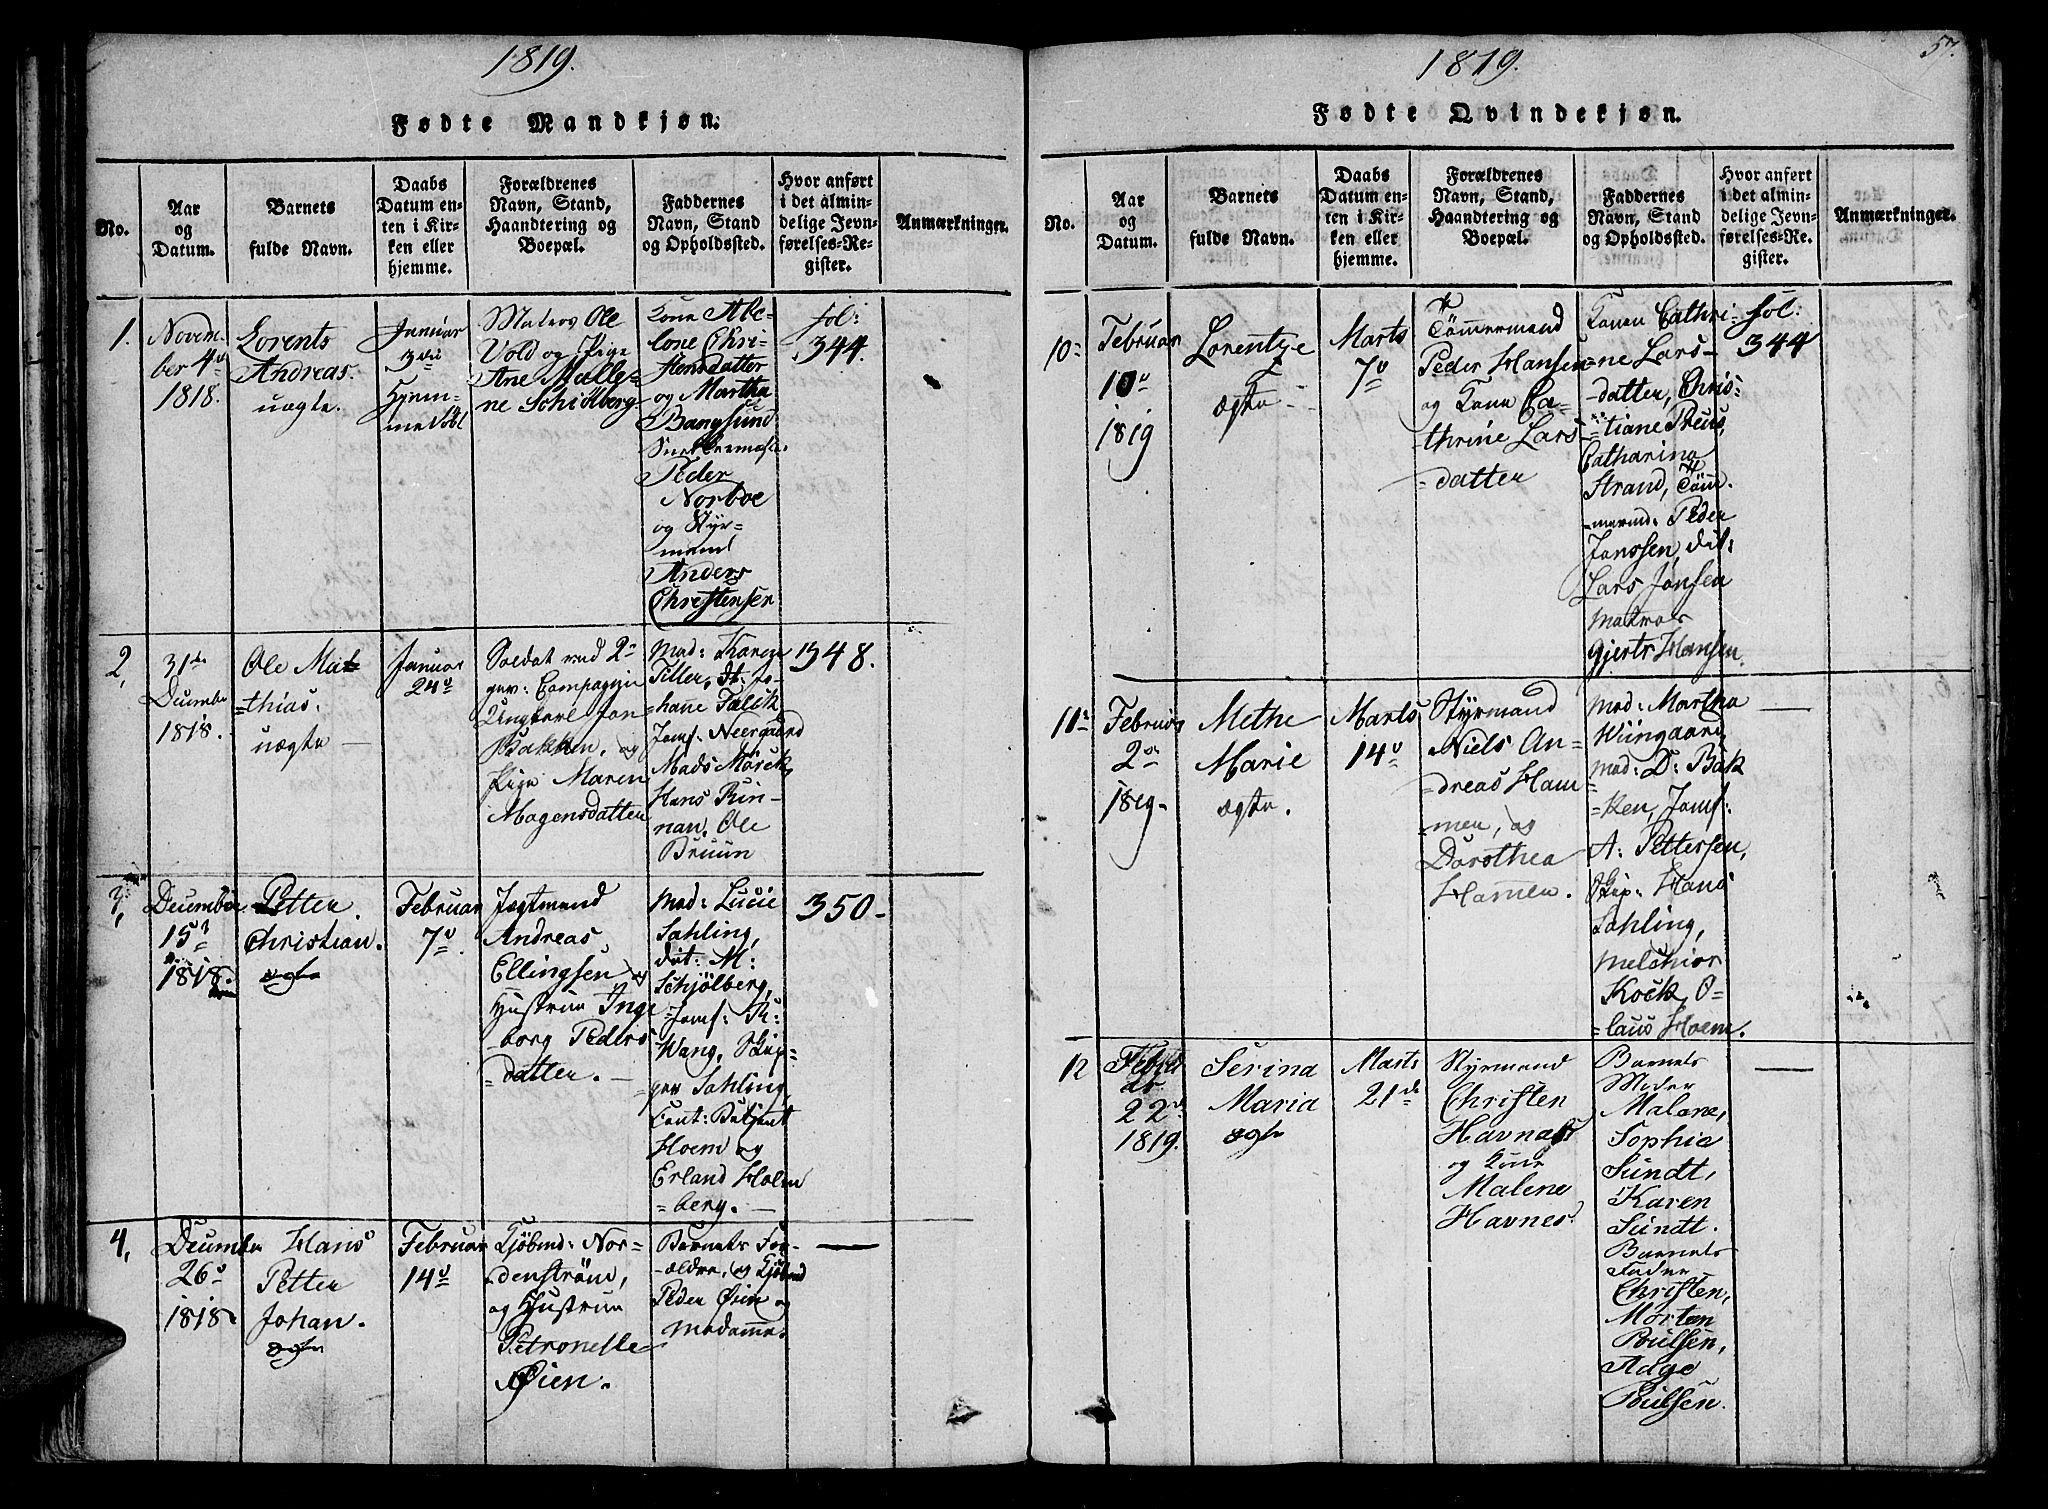 1819.
Fødte Mandkjøn.
No.
Aar
og
Datum.
Barnets
fulde Navn.
Daabs
Datum en-
ten i Kir-
ken eller
hjemme.
Forældrenes
Navn, Stand,
Haandtering og
Boepæl.
Faddernes
Navn, Stand
og Opholdssted.
Hvor anført
i det almin-
delige Jevn-
førelses-Re-
gister.
Anmærkninger.
1.
Novem
ber 4de
1818.
Lorents
Andreas.
uægte.
Januar
3die
Hjem-
medøbt
Matros Ole
Vold og Pige
Ane Malle-
ne Schiölberg
Kone Abe-
lone Chri-
stensdatter
og Martha
Bangsund
Peder
Norboe
og Styr-
mand
Anders
Christensen
fol:
344.
2,
31de
December
1818.
Ole Mat-
thias.
uægte
Januar
24d
Soldat ved 2de
gev: Compagnie
Ungkarl Jon
Bakken, og
Pige Maren
Mogensdatter
Mad: Karen
Tiller, dt: Jo-
hane Falck
Jomf: Neergaard
Mads Mörck,
Hans Rin-
nan, Ole
Bruun
348.
3,
December
15de
1818.
Petter
Christian.
ægte
Februar
7d
Jægtmand
Andreas
Ellingsen og
Hustrue Inge
borg Peders
=datter.
Mad: Lucie
Sahling,
dit: M:
Schjölberg,
Jomf: R:
Wang, Skip-
per Sahling,
Hoem og
Erland Holm
=berg.
350
4,
December
26d
1818
Hans
Petter
Johan.
ægte
Februar
14d
Kjöbmd: Nor-
denström,
og Hustrue
Petronelle
Øien.
Barnets For-
ældre, og Kjöbmd
Peder Øien og
Madamme.
1819.
57.
Fødte Qvindekjøn.
No.
Aar
og
Datum.
Barnets
fulde Navn.
Daabs
Datum en-
ten i Kir-
ken eller
hjemme.
Forældrenes
Navn, Stand,
Haandtering og
Boepæl.
Faddernes
Navn, Stand
og Opholdssted.
Hvor anført
i det almin-
delige Jevn-
førelses-Re-
gister.
Anmærkninger.
10
Februar
10d
1819
Lorentze
ægte
Marts
7d
Tömmermand
Peder Hansen
og Kone Ca-
thrine Lars
=datter
Konen Cathri-
ne Lars-
datter, Chris-
tiane Preus,
Catharina
Strand, Tömm.
=mermd: Peder
Janssen, dit:
Lars Jonsen
Matros
Gjerts Hansen.
fol.
344
11
Februar
2den
1819.
Methe
Marie
ægte.
Marts
14d
Styrmand
Niels An-
dreas Ham
men, og
Dorothea
Hammen.
Mad: Martha
Wiingaard
Mad: D: Bak
ken, Jomf:
A: Pettersen,
Skip: Hans
Sahling,
Melchior
Kock, O-
laus Hoem.
12
Febru
ar
22de
1819.
Serina
Maria
ægte
Marts
21de
Styrmand
Christen
Havnes
og Kone
Malene
Havnes.
Barnets
Moder
Malene,
Sophie
Sundt,
Karen
Sundt.
Barnets
Fader
Christen,
Morten
Poulsen,
Aage
Poulsen.